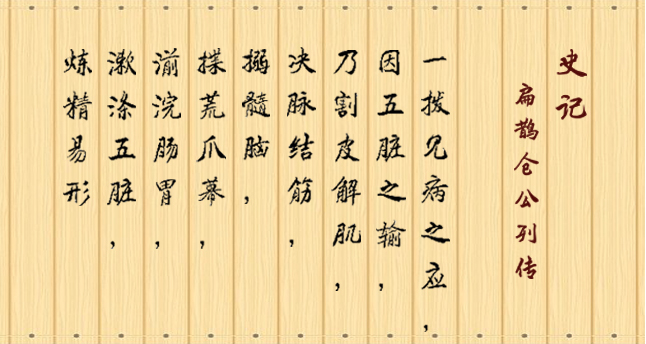 史记
扁鹊仓公列传
一拨见病之应，
因五脏之输，
乃割皮解肌，
决脉结筋，
搦髓脑，
揲荒爪幕，
湔浣肠胃，
漱涤五脏，
炼精易形